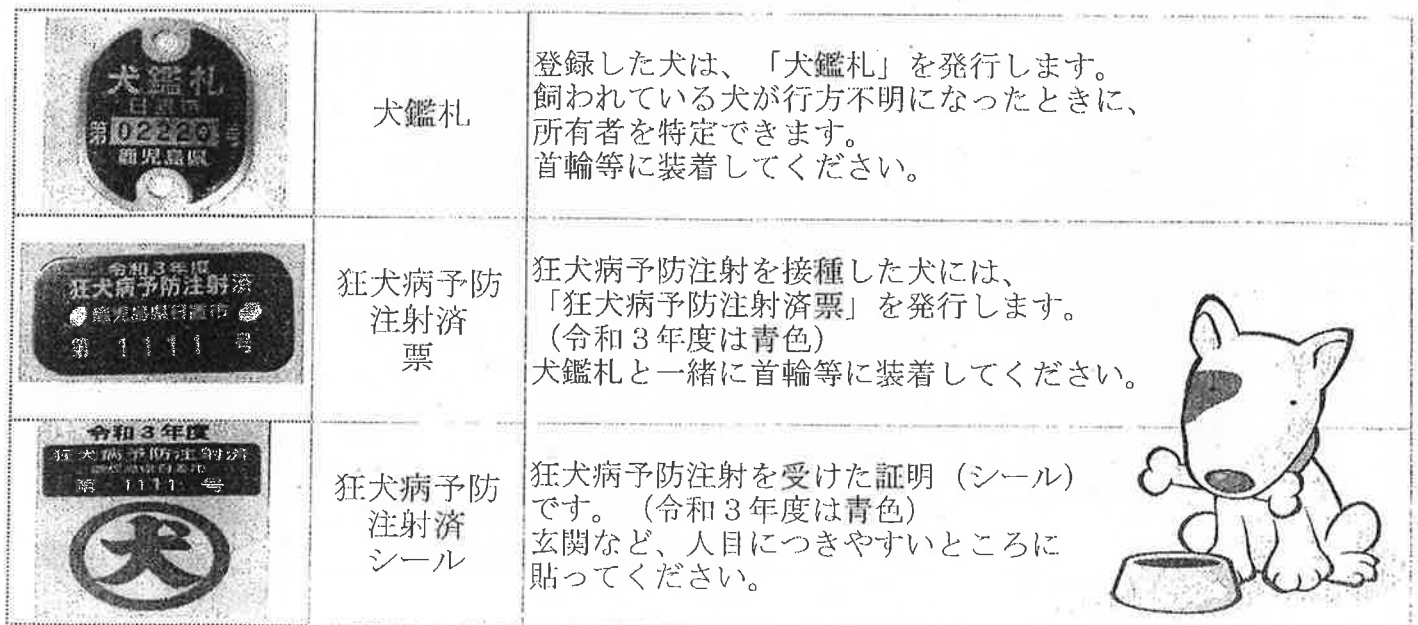 犬鑑札
日置市
第 02220 号
鹿児島県
犬鑑札
登録した犬は、「犬鑑札」を発行します。
飼われている犬が行方不明になったときに、
所有者を特定できます。
首輪等に装着してください。
令和3年度
狂犬病予防注射済
鹿児島県日置市
第 1111 号
狂犬病予防
注射済
票
狂犬病予防注射を接種した犬には、
「狂犬病予防注射済票」を発行します。
(令和3年度は青色)
犬鑑札と一緒に首輪等に装着してください。
令和3年度
狂犬病予防注射済
鹿児島県日置市
第 1111 号
犬
狂犬病予防
注射済
シール
狂犬病予防注射を受けた証明(シール)
です。(令和3年度は青色)
玄関など、人目につきやすいところに
貼ってください。